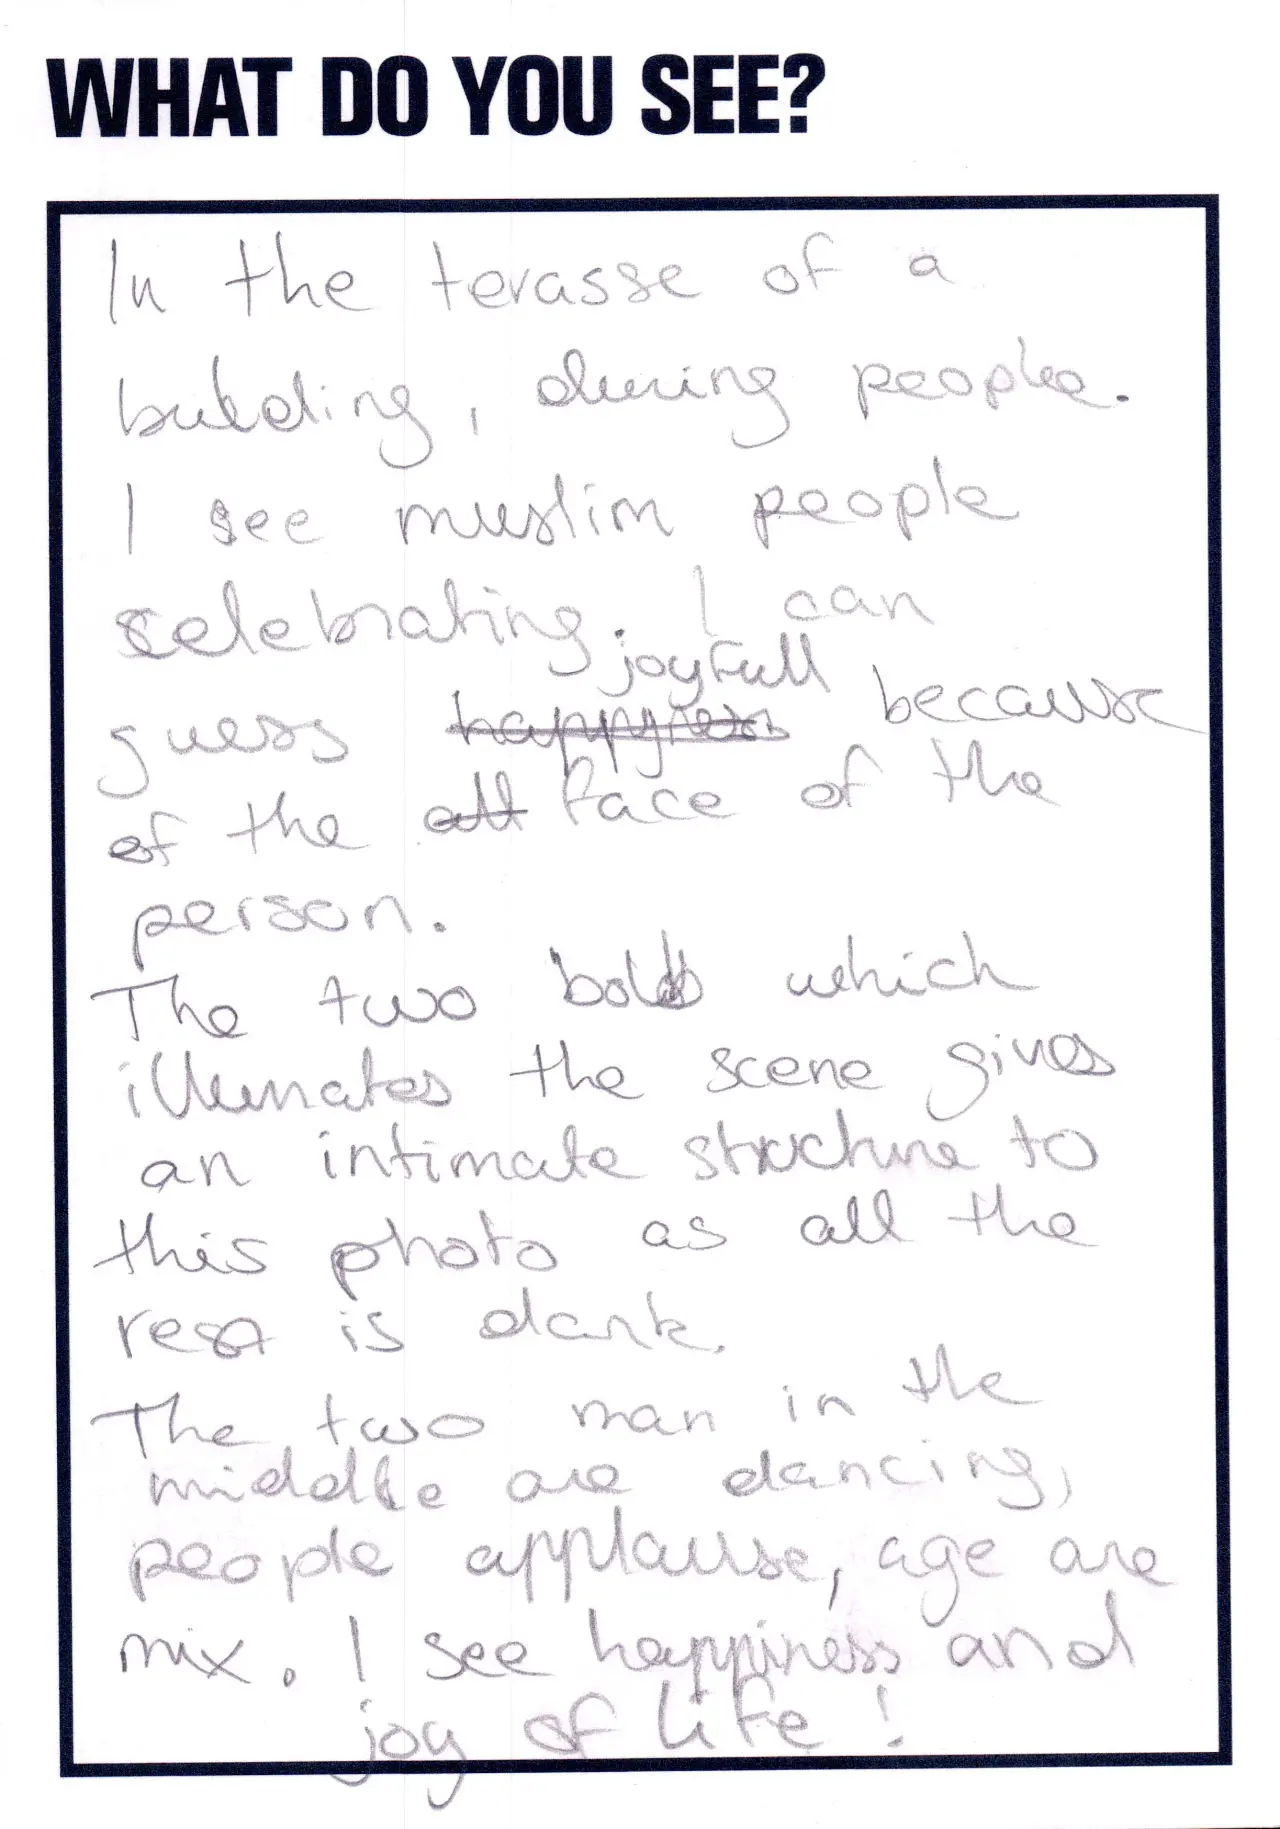 WHAT DO YOU SEE?
In the terasse of a
building, during people.
I see muslim people
celebrating. I can
joyfull
guess happyness because
of the all face of the
person.
The two which
illumates the scene gives
an intimate structure to
this photo as all the
rest is dark.
The two man in the
middle are dancing,
people applause, age are
mix. I see happiness and
joy of life!